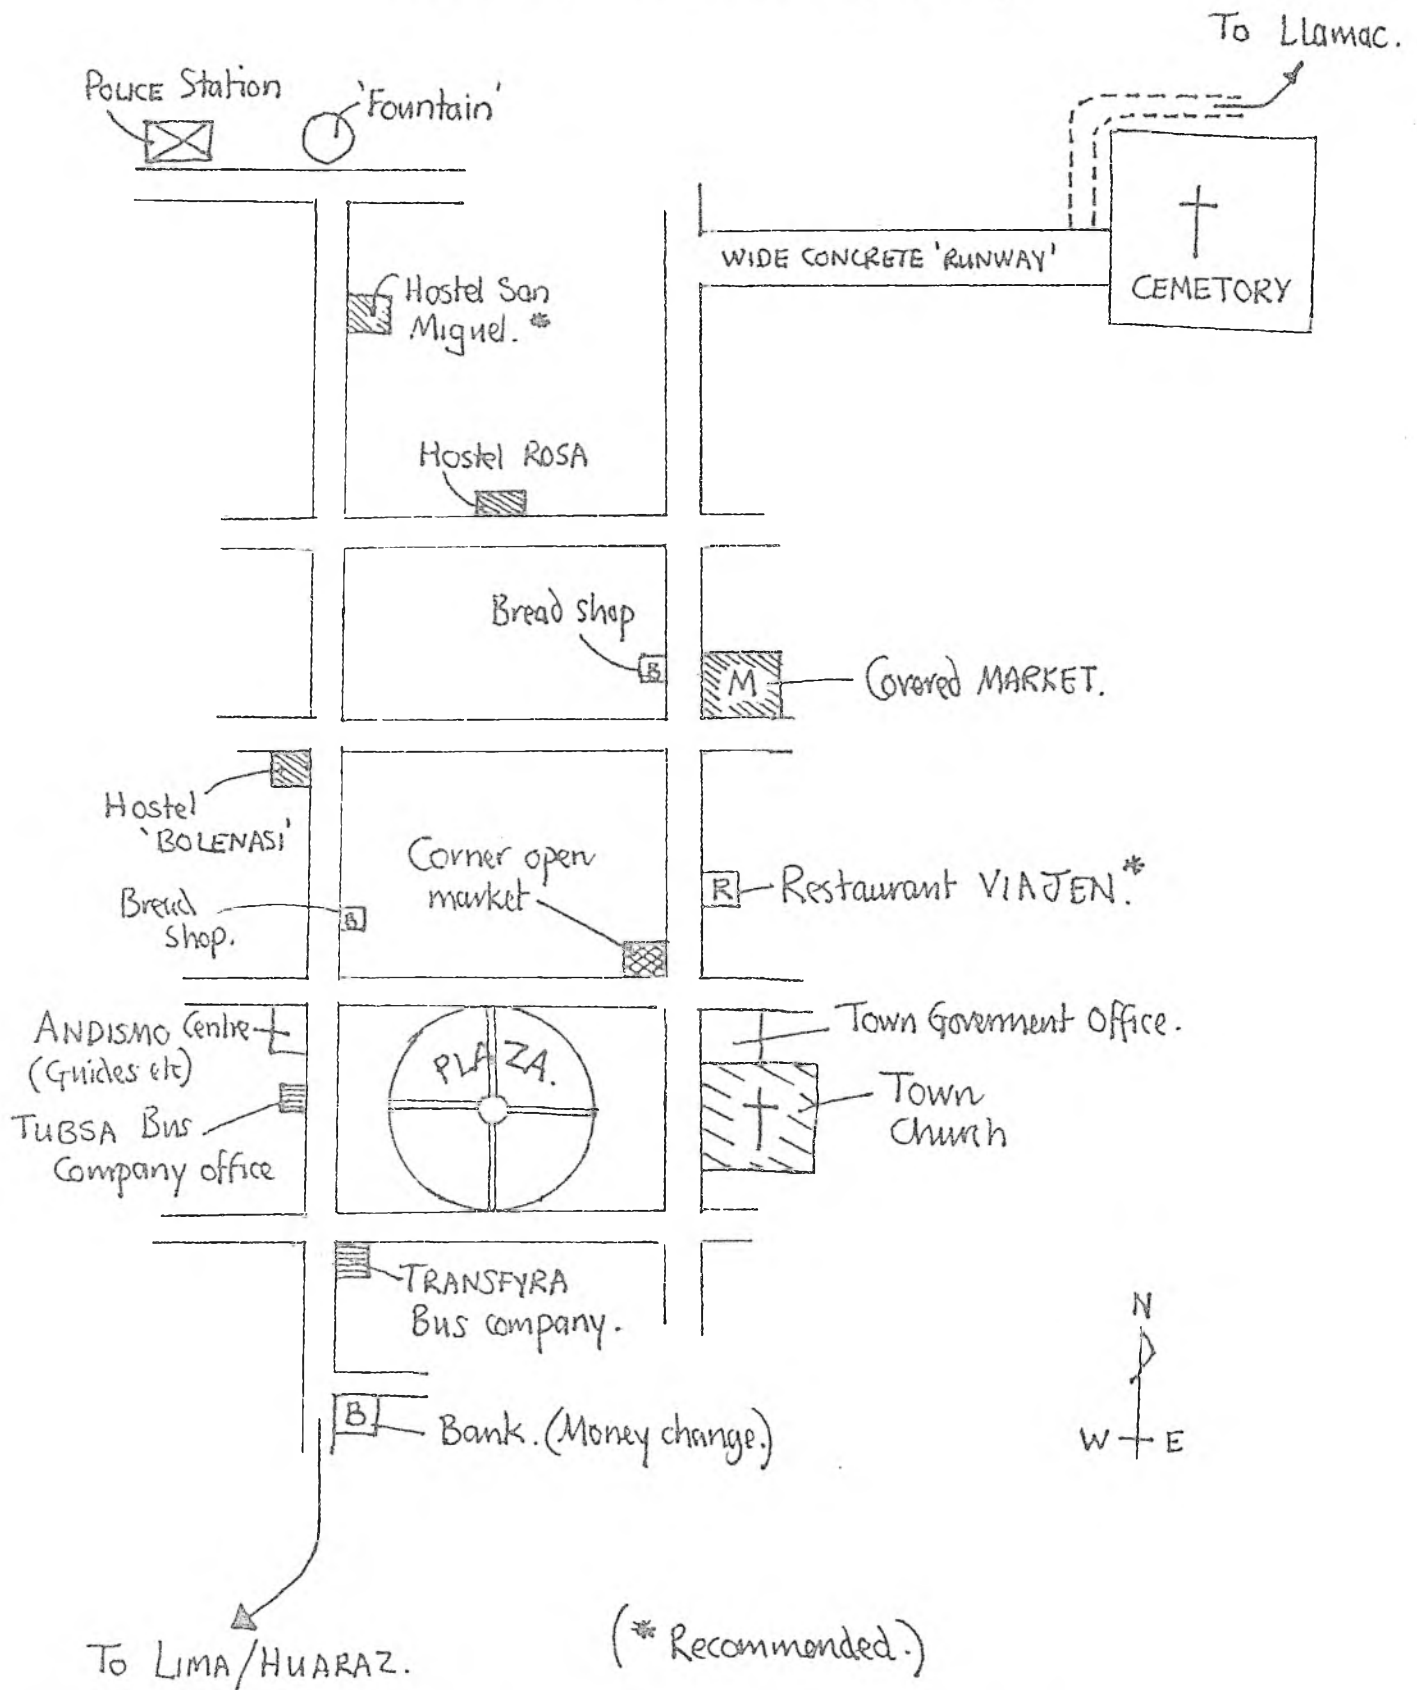 To Llamac.
POLICE Station
'Fountain'
WIDE CONCRETE 'RUNWAY'
CEMETORY
Hostel San
Miguel. *
Hostel ROSA
Bread shop
B
M
Covered MARKET.
Hostel
'BOLENASI'
Corner open
market
R
Restaurant VIAJEN. *
Bread
shop.
B
ANDISMO Centre
(Guides etc)
PLAZA.
Town Goverment Office.
TUBSA Bus
Company office
Town
Church
TRANSFYRA
Bus company.
N
W E
B
Bank. (Money change.)
To LIMA/HUARAZ.
(* Recommended.)